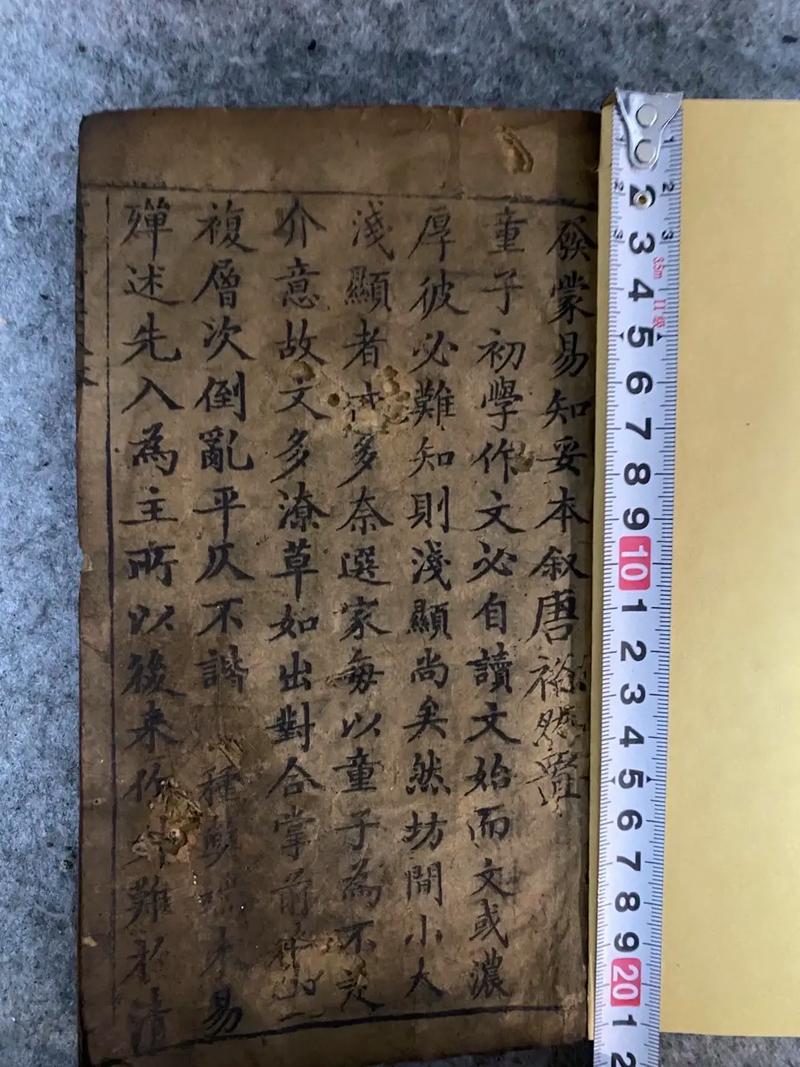 發蒙易知妥本叙唐裕然置
童子初學作文必自讀文始而文或濃
厚彼必難知則淺顯尚矣然坊間小大
淺顯者多奈選家每以童子為不足
介意故文多潦草如出對合掌前
複層次倒亂平仄不諧種難以易
殫述先入為主所以後来作難於清
1
2
3
4
5
6
7
8
9
10
1
2
3
4
5
6
7
8
9
20
1
2
3.5m